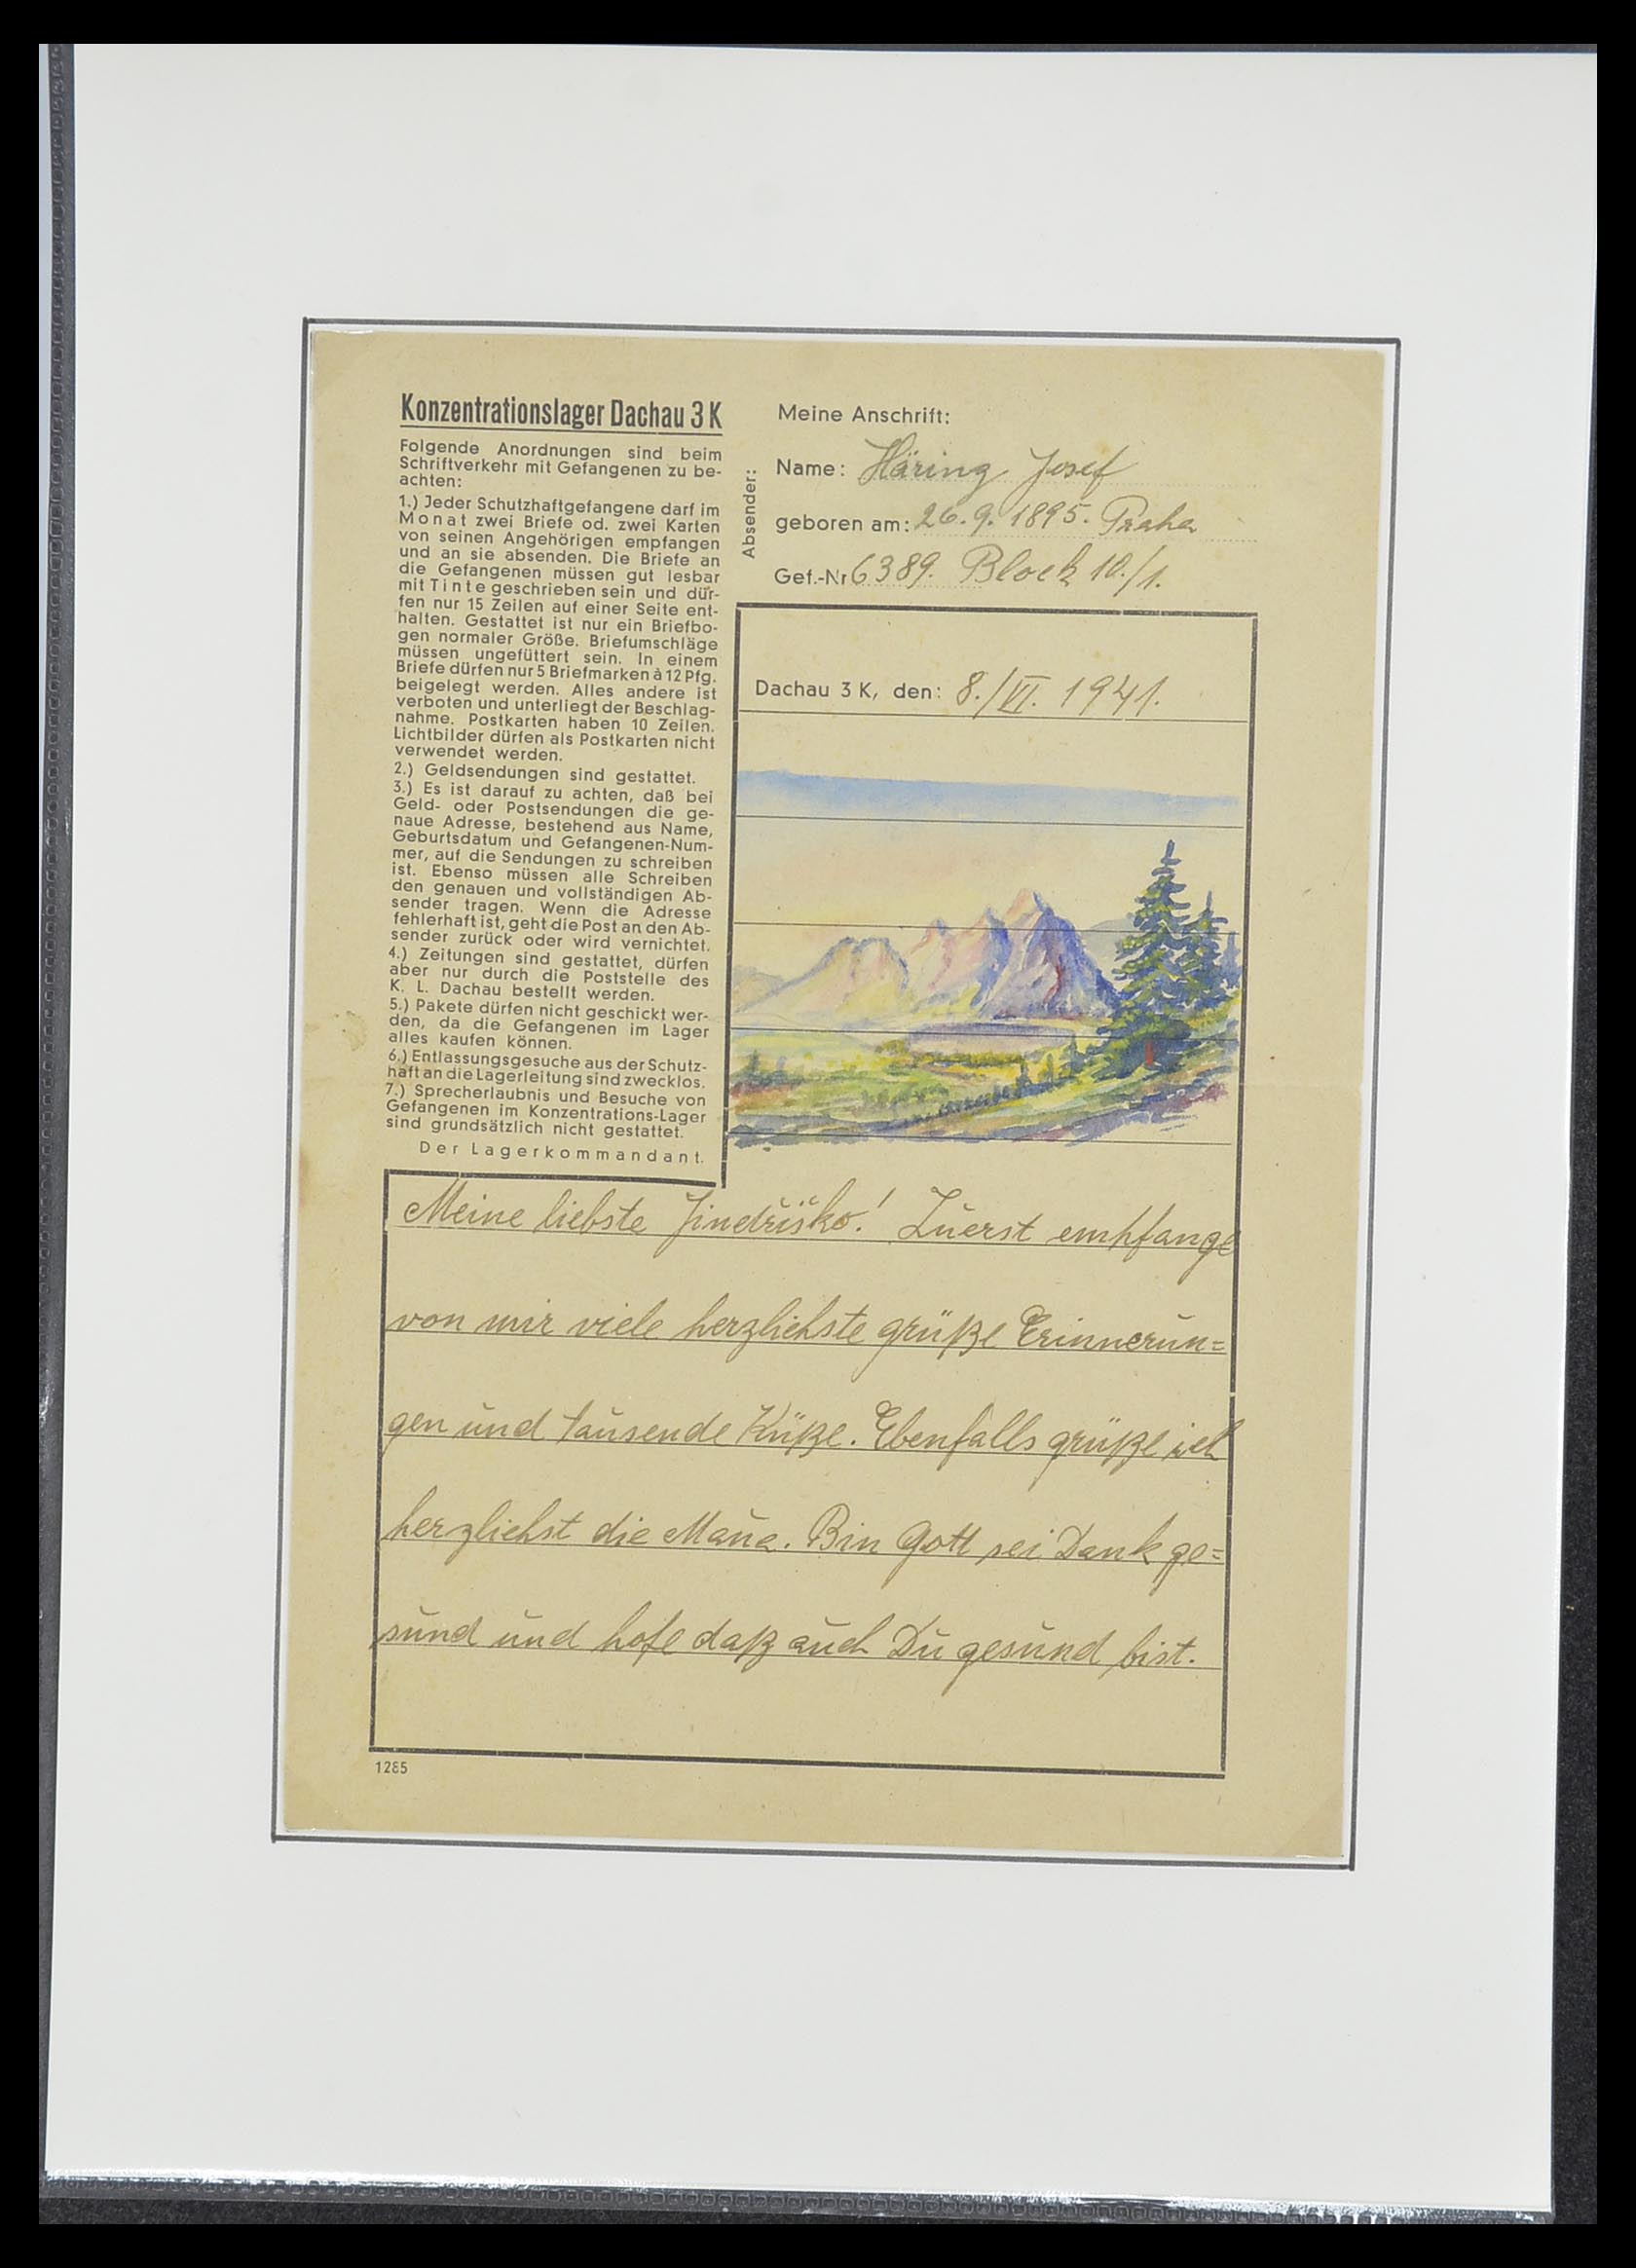 Konzentrationslager Dachau 3 K
Folgende Anordnungen sind beim
Schriftverkehr mit Gefangenen zu be-
achten:
1.) Jeder Schutzhaftgefangene darf im
Monat zwei Briefe od. zwei Karten
von seinen Angehörigen empfangen
und an sie absenden. Die Briefe an
die Gefangenen müssen gut lesbar
mit Tinte geschrieben sein und dür-
fen nur 15 Zeilen auf einer Seite ent-
halten. Gestattet ist nur ein Briefbo-
gen normaler Größe. Briefumschläge
müssen ungefüttert sein. In einem
Briefe dürfen nur 5 Briefmarken à 12 Pfg.
beigelegt werden. Alles andere ist
verboten und unterliegt der Beschlag-
nahme. Postkarten haben 10 Zeilen.
Lichtbilder dürfen als Postkarten nicht
verwendet werden.
2.) Geldsendungen sind gestattet.
3.) Es ist darauf zu achten, daß bei
Geld- oder Postsendungen die ge-
naue Adresse, bestehend aus Name,
Geburtsdatum und Gefangenen-Num-
mer, auf die Sendungen zu schreiben
ist. Ebenso müssen alle Schreiben
den genauen und vollständigen Ab-
sender tragen. Wenn die Adresse
fehlerhaft ist, geht die Post an den Ab-
sender zurück oder wird vernichtet.
4.) Zeitungen sind gestattet, dürfen
aber nur durch die Poststelle des
K. L. Dachau bestellt werden.
5.) Pakete dürfen nicht geschickt wer-
den, da die Gefangenen im Lager
alles kaufen können.
6.) Entlassungsgesuche aus der Schutz-
haft an die Lagerleitung sind zwecklos.
7.) Sprecherlaubnis und Besuche von
Gefangenen im Konzentrations-Lager
sind grundsätzlich nicht gestattet.
Der Lagerkommandant.
Absender:
Meine Anschrift:
Name: Häring Josef
geboren am: 26. 9. 1895. Praha
Gef.-Nr 6389. Block 10./1.
Dachau 3 K, den: 8./VI. 1941.
Meine liebste Jindřiško! Zuerst empfange
von mir viele herzlichste grüße Erinnerun=
gen und tausende Küße. Ebenfalls grüße ich
herzlichst die Maňa. Bin Gott sei Dank ge=
sund und hofe daß auch Du gesund bist.
1285